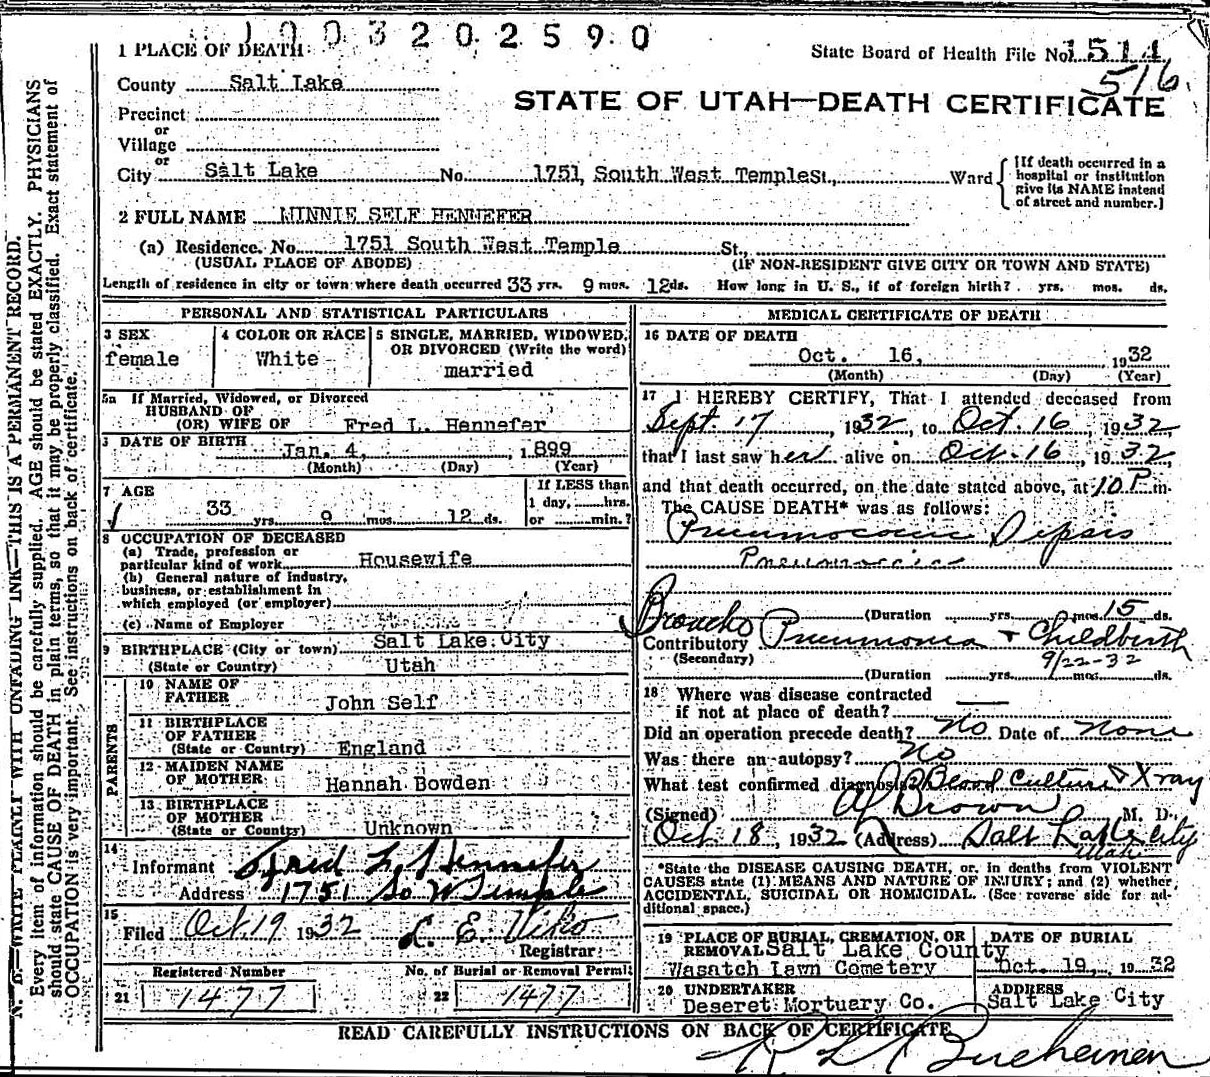 1003202590
1 PLACE OF DEATH
State Board of Health File No. 1514
516.
County Salt Lake
STATE OF UTAH—DEATH CERTIFICATE
Precinct
or
Village
or
City Salt Lake No. 1751, South West Temple St., Ward
[If death occurred in a
hospital or institution
give its NAME instead
of street and number.]
2 FULL NAME MINNIE SELF HENNEFER
(a) Residence. No. 1751 South West Temple St.,
(USUAL PLACE OF ABODE) (IF NON-RESIDENT GIVE CITY OR TOWN AND STATE)
Length of residence in city or town where death occurred 33 yrs. 9 mos. 12 ds. How long in U. S., if of foreign birth? yrs. mos. ds.
PERSONAL AND STATISTICAL PARTICULARS
3 SEX
female
4 COLOR OR RACE
White
5 SINGLE, MARRIED, WIDOWED,
OR DIVORCED (Write the word)
married
5a If Married, Widowed, or Divorced
HUSBAND OF
(OR) WIFE OF Fred L. Hennefer
DATE OF BIRTH
Jan. 4, 1899
(Month) (Day) (Year)
7 AGE
33 yrs. 9 mos. 12 ds.
If LESS than
1 day, hrs.
or min.?
8 OCCUPATION OF DECEASED
(a) Trade, profession or
particular kind of work Housewife
(b) General nature of Industry,
business, or establishment in
which employed (or employer)
(c) Name of Employer
9 BIRTHPLACE (City or town) Salt Lake City
(State or Country) Utah
PARENTS
10 NAME OF
FATHER John Self
11 BIRTHPLACE
OF FATHER
(State or Country) England
12 MAIDEN NAME
OF MOTHER Hannah Bowden
13 BIRTHPLACE
OF MOTHER
(State or Country) Unknown
14
Informant Fred L. Hennefer
Address 1751 So W Temple
15
Filed Oct 19 1932 L. E. Viko
Registrar
Registered Number
21 1477
No. of Burial or Removal Permit
22 1477
MEDICAL CERTIFICATE OF DEATH
16 DATE OF DEATH
Oct. 16, 1932
(Month) (Day) (Year)
17 I HEREBY CERTIFY, That I attended deceased from
Sept. 17, 1932, to Oct. 16, 1932,
that I last saw her alive on Oct. 16, 1932,
and that death occurred, on the date stated above, at 10 P m.
The CAUSE DEATH* was as follows:
Pneumococcic Sepsis
(Duration yrs. mos. 15 ds.
Broncho
Contributory Pneumonia + Childbirth
(Secondary) 9/22-32
(Duration yrs. mos. ds.
18 Where was disease contracted
if not at place of death?
Did an operation precede death? No Date of None
Was there an autopsy? No
What test confirmed diagnosis? Blood Culture & Xray
(Signed) Brown M. D.
Oct 18, 1932 (Address) Salt Lake City
Utah
*State the DISEASE CAUSING DEATH, or, in deaths from VIOLENT
CAUSES state (1) MEANS AND NATURE OF INJURY; and (2) whether
ACCIDENTAL, SUICIDAL OR HOMICIDAL. (See reverse side for ad-
ditional space.)
19 PLACE OF BURIAL, CREMATION, OR
REMOVAL Salt Lake County
Wasatch Lawn Cemetery
DATE OF BURIAL
Oct. 19, 1932
20 UNDERTAKER
Deseret Mortuary Co.
ADDRESS
Salt Lake City
READ CAREFULLY INSTRUCTIONS ON BACK OF CERTIFICATE
N. B.—WRITE PLAINLY WITH UNFADING INK—THIS IS A PERMANENT RECORD.
Every item of information should be carefully supplied. AGE should be stated EXACTLY. PHYSICIANS
should state CAUSE OF DEATH in plain terms, so that it may be properly classified. Exact statement of
OCCUPATION is very important. See instructions on back of certificate.